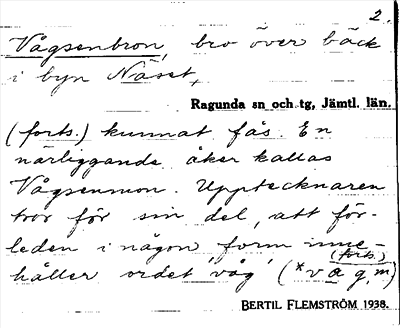 2.
Vågsenbron, bro över bäck
i byn Näset,
Ragunda sn och tg, Jämtl. län.
(forts.) kunnat fås. En
närliggande åker kallas
Vågsenmon. Upptecknaren
tror för sin del, att för-
leden i någon form inne-
håller ordet 'våg' (*vag, m)
(forts.)
BERTIL FLEMSTRÖM 1938.